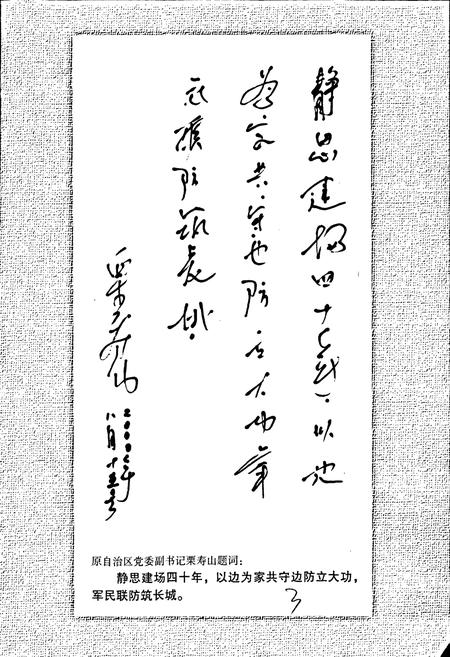 静思建场四十年，以边
为家共守边防立大功军
民联防筑长城
栗寿山
八月十五号
原自治区党委副书记栗寿山题词：
静思建场四十年，以边为家共守边防立大功，
军民联防筑长城。
3